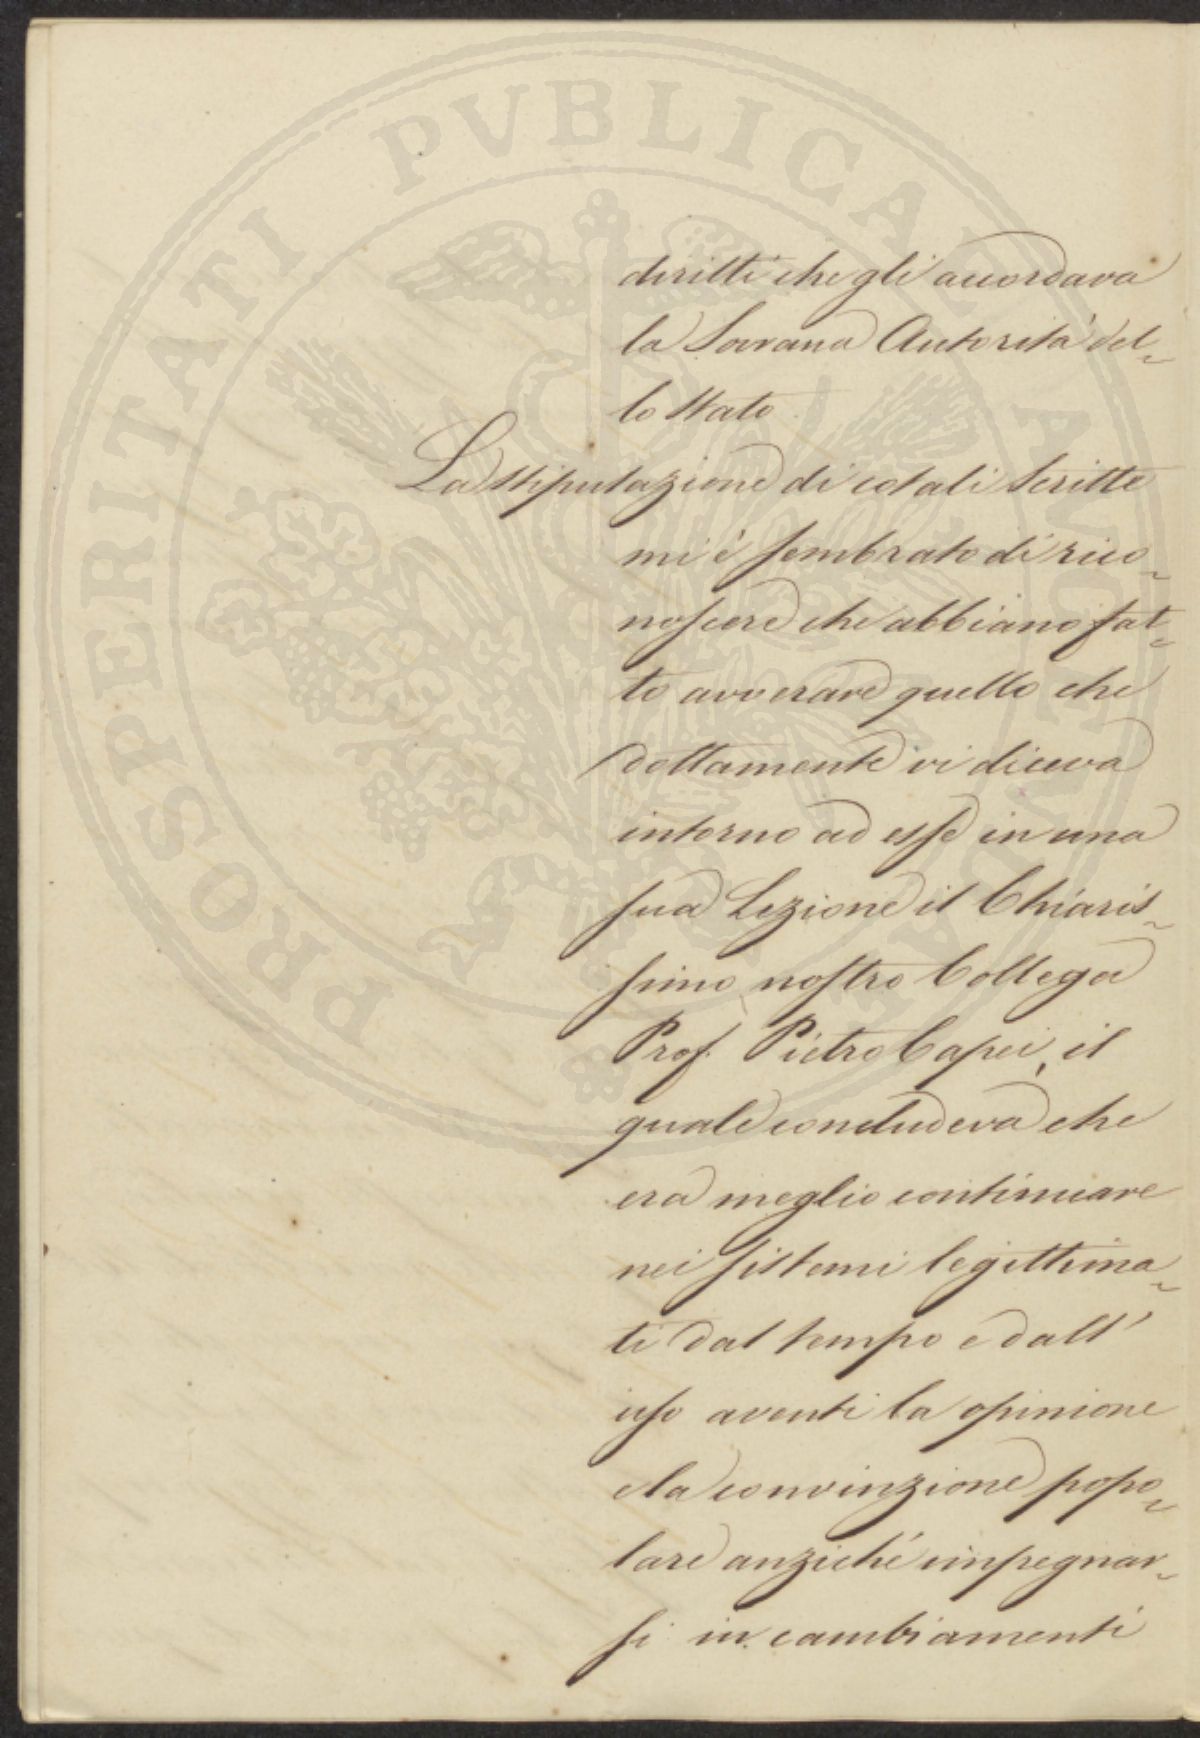 PROSPERITATI PVBLICAE AVGENDAE
diritti che gli accordava
la Sovrana Autorità del-
lo Stato.
La stipulazione di cotali Scritte
mi è sembrato di rico-
noscere che abbiano fat-
to avverare quello che
dottamente vi diceva
intorno ad esse in una
sua Lezione il Chiaris-
simo nostro Collega
Prof. Pietro Capei, il
quale concludeva che
era meglio continuare
nei sistemi legittima-
ti dal tempo e dall'
uso aventi la opinione
e la convinzione popo-
lare anziché impegnar-
si in cambiamenti